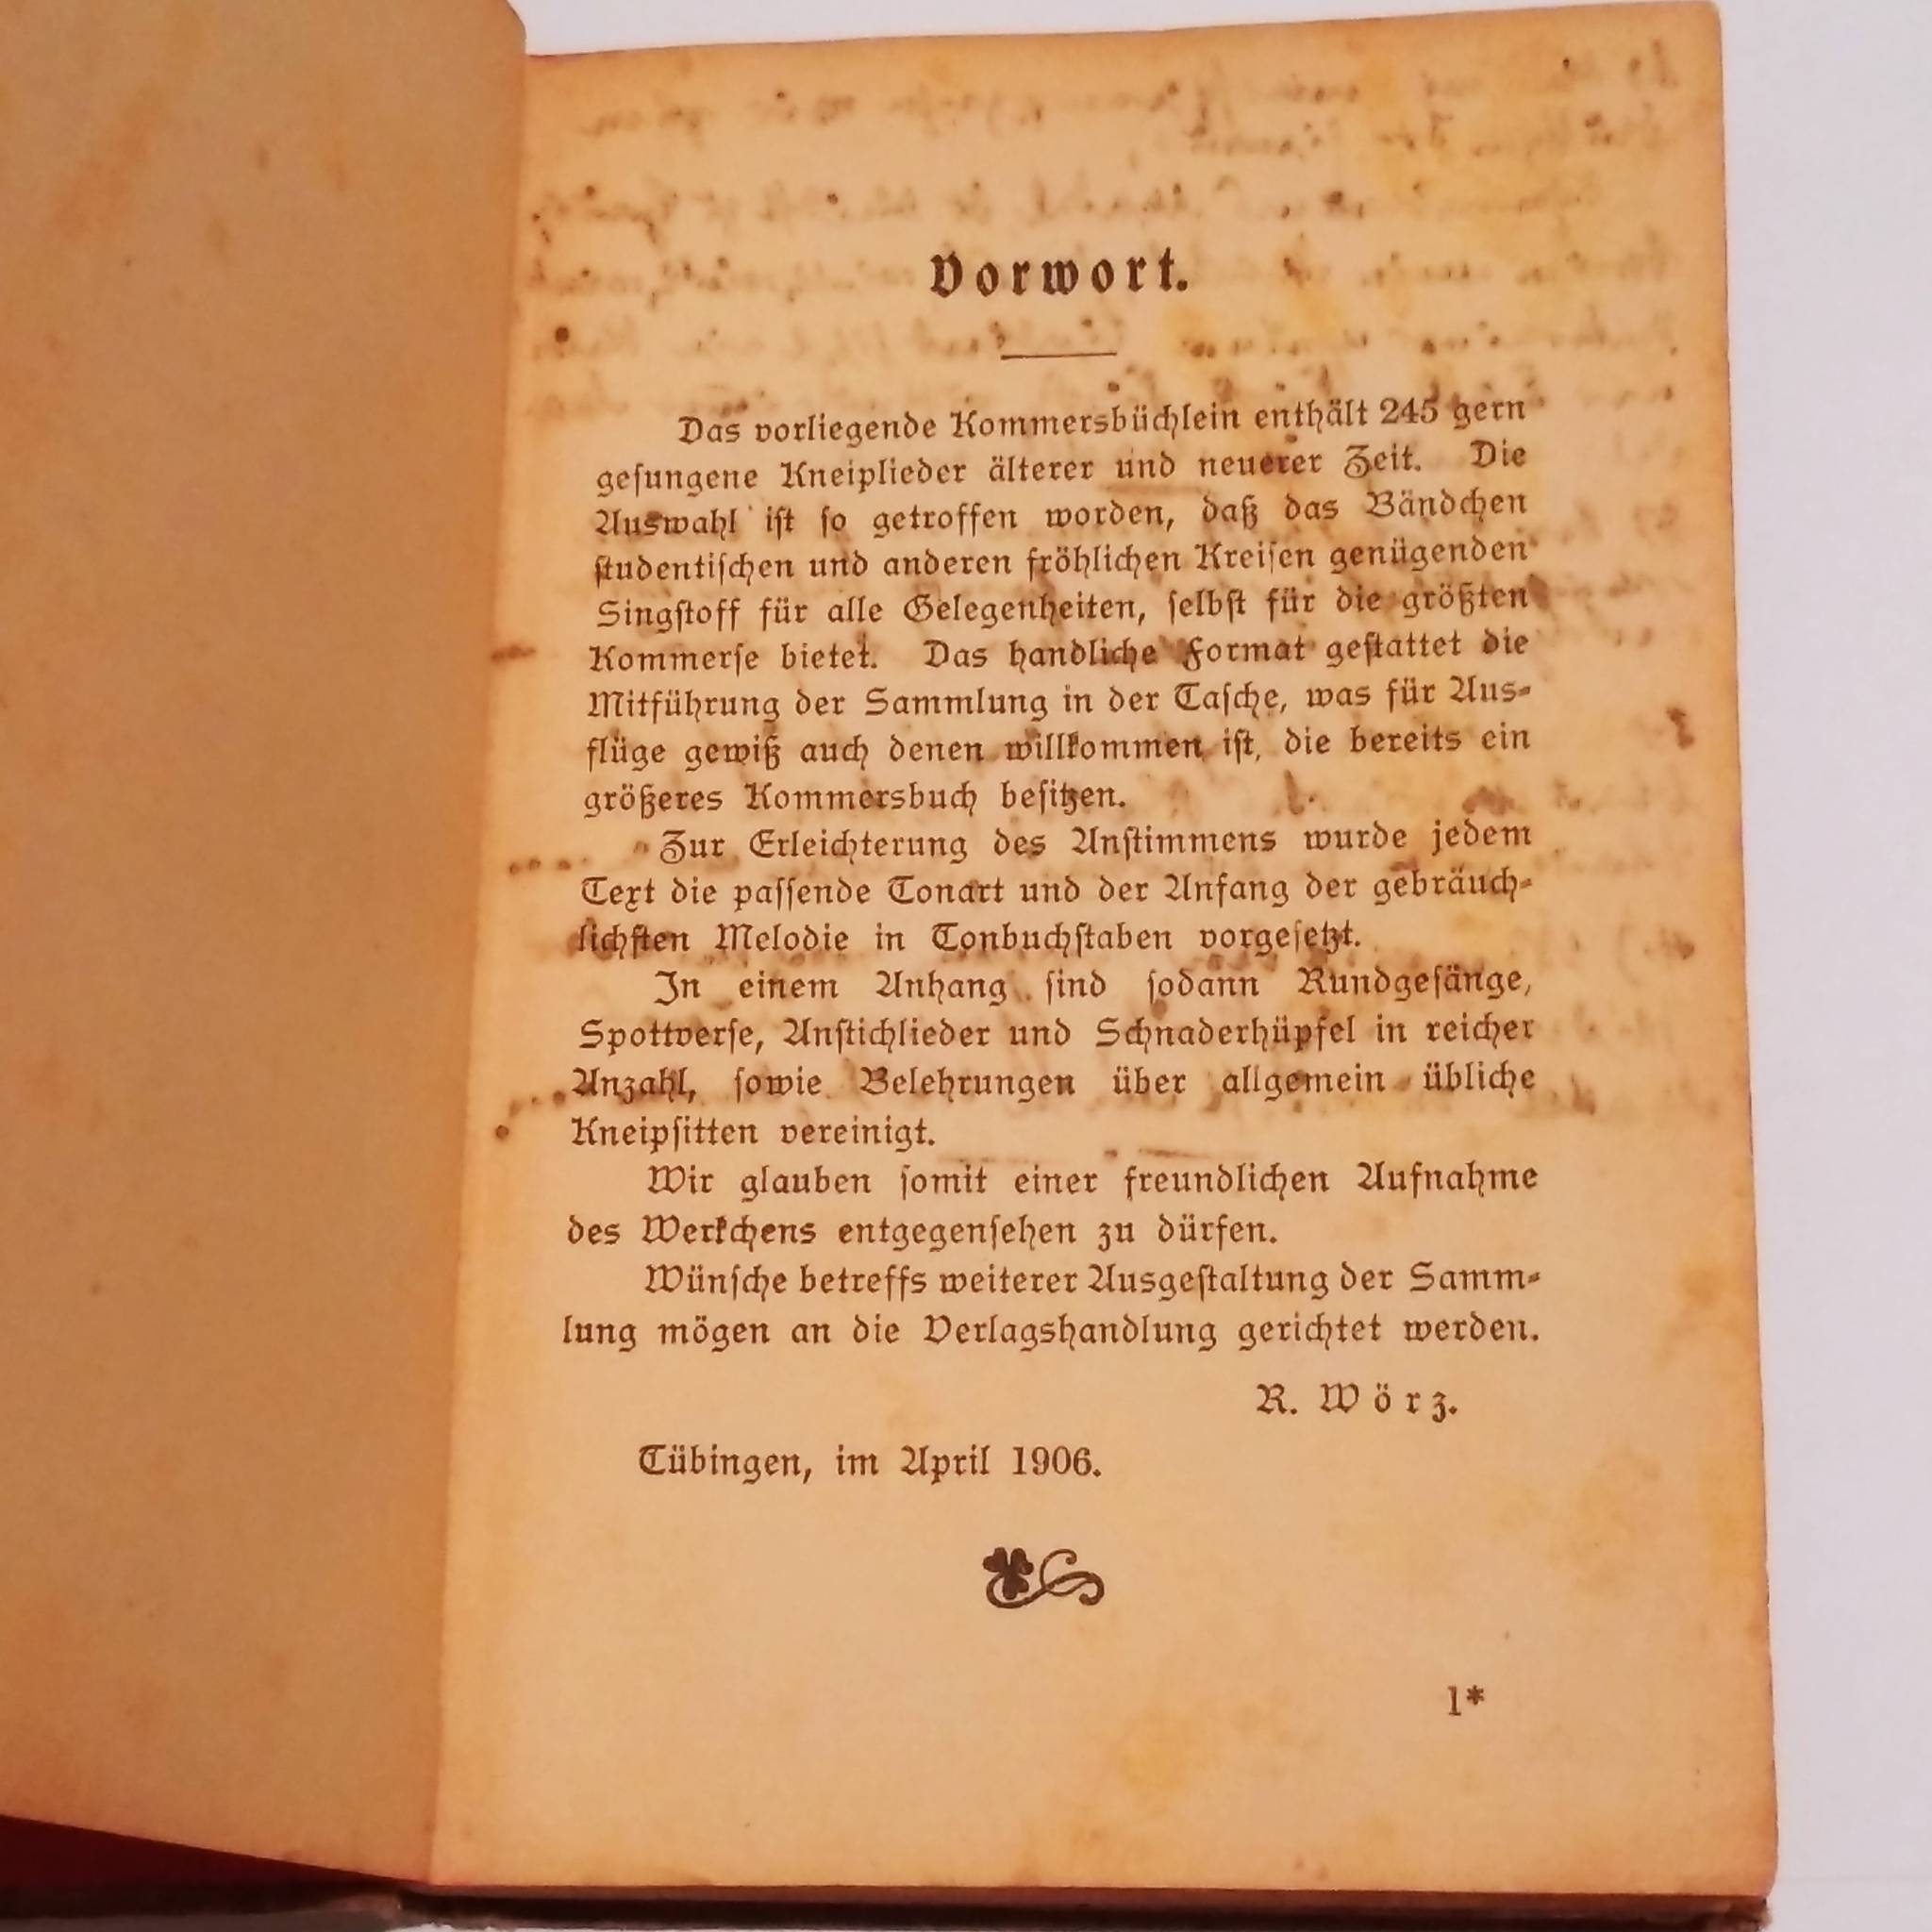 Vorwort.
Das vorliegende Kommersbüchlein enthält 245 gern
geſungene Kneiplieder älterer und neuerer Zeit. Die
Auswahl iſt ſo getroffen worden, daß das Bändchen
ſtudentiſchen und anderen fröhlichen Kreiſen genügenden
Singſtoff für alle Gelegenheiten, ſelbſt für die größten
Kommerſe bietet. Das handliche Format geſtattet die
Mitführung der Sammlung in der Taſche, was für Aus-
flüge gewiß auch denen willkommen iſt, die bereits ein
größeres Kommersbuch beſitzen.
Zur Erleichterung des Anſtimmens wurde jedem
Text die paſſende Tonart und der Anfang der gebräuch-
lichſten Melodie in Tonbuchſtaben vorgeſetzt.
In einem Anhang ſind ſodann Rundgeſänge,
Spottverſe, Anſtichlieder und Schnaderhüpfel in reicher
Anzahl, ſowie Belehrungen über allgemein übliche
Kneipſitten vereinigt.
Wir glauben ſomit einer freundlichen Aufnahme
des Werkchens entgegenſehen zu dürfen.
Wünſche betreffs weiterer Ausgeſtaltung der Samm-
lung mögen an die Verlagshandlung gerichtet werden.
R. Wörz.
Tübingen, im April 1906.
1*